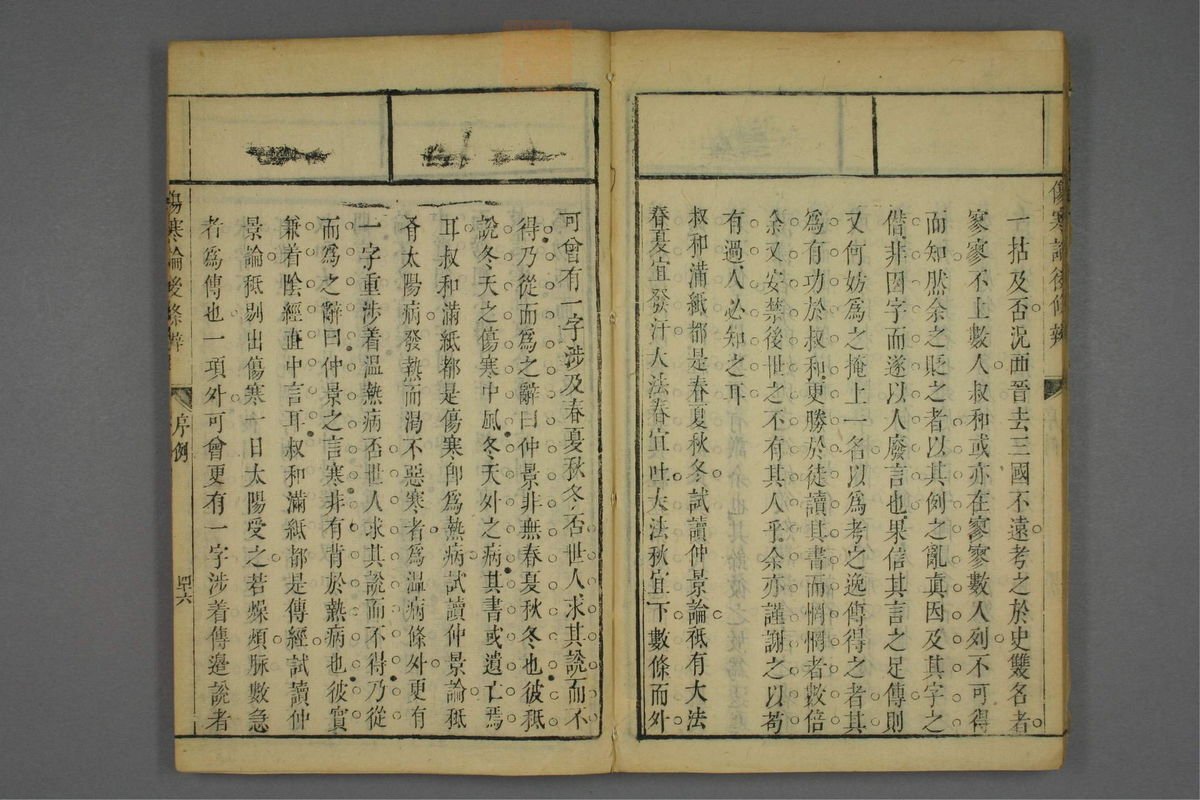 傷寒論後條辨
一拈及否況西晉去三國不遠考之於史雙名者
寥寥不上數人叔和或亦在寥寥數人列不可得
而知然余之貶之者以其例之亂真因及其字之
僭非因字而遂以人廢言也果信其言之足傳則
又何妨爲之掩上一名以爲考之逸傳得之者其
爲有功於叔和更勝於徒讀其書而惘惘者數倍
余又安禁後世之不有其人乎余亦謹謝之以苟
有過人必知之耳
叔和滿紙都是春夏秋冬試讀仲景論秪有大法
春夏宜發汗大法春宜吐大法秋宜下數條而外
可曾有一字涉及春夏秋冬否世人求其說而不
得乃從而爲之辭曰仲景非無春夏秋冬也彼秪
說冬天之傷寒中風冬天外之病其書或遺亡焉
耳叔和滿紙都是傷寒卽爲熱病試讀仲景論秪
有太陽病發熱而渴不惡寒者爲温病條外更有
一字重涉着温熱病否世人求其說而不得乃從
而爲之辭曰仲景之言寒非有背於熱病也彼實
兼着陰經直中言耳叔和滿紙都是傳經試讀仲
景論秪剔出傷寒一日太陽受之若燥煩脉數急
者爲傳也一項外可曾更有一字涉着傳邊說者
傷寒論後條辨
序例
四六